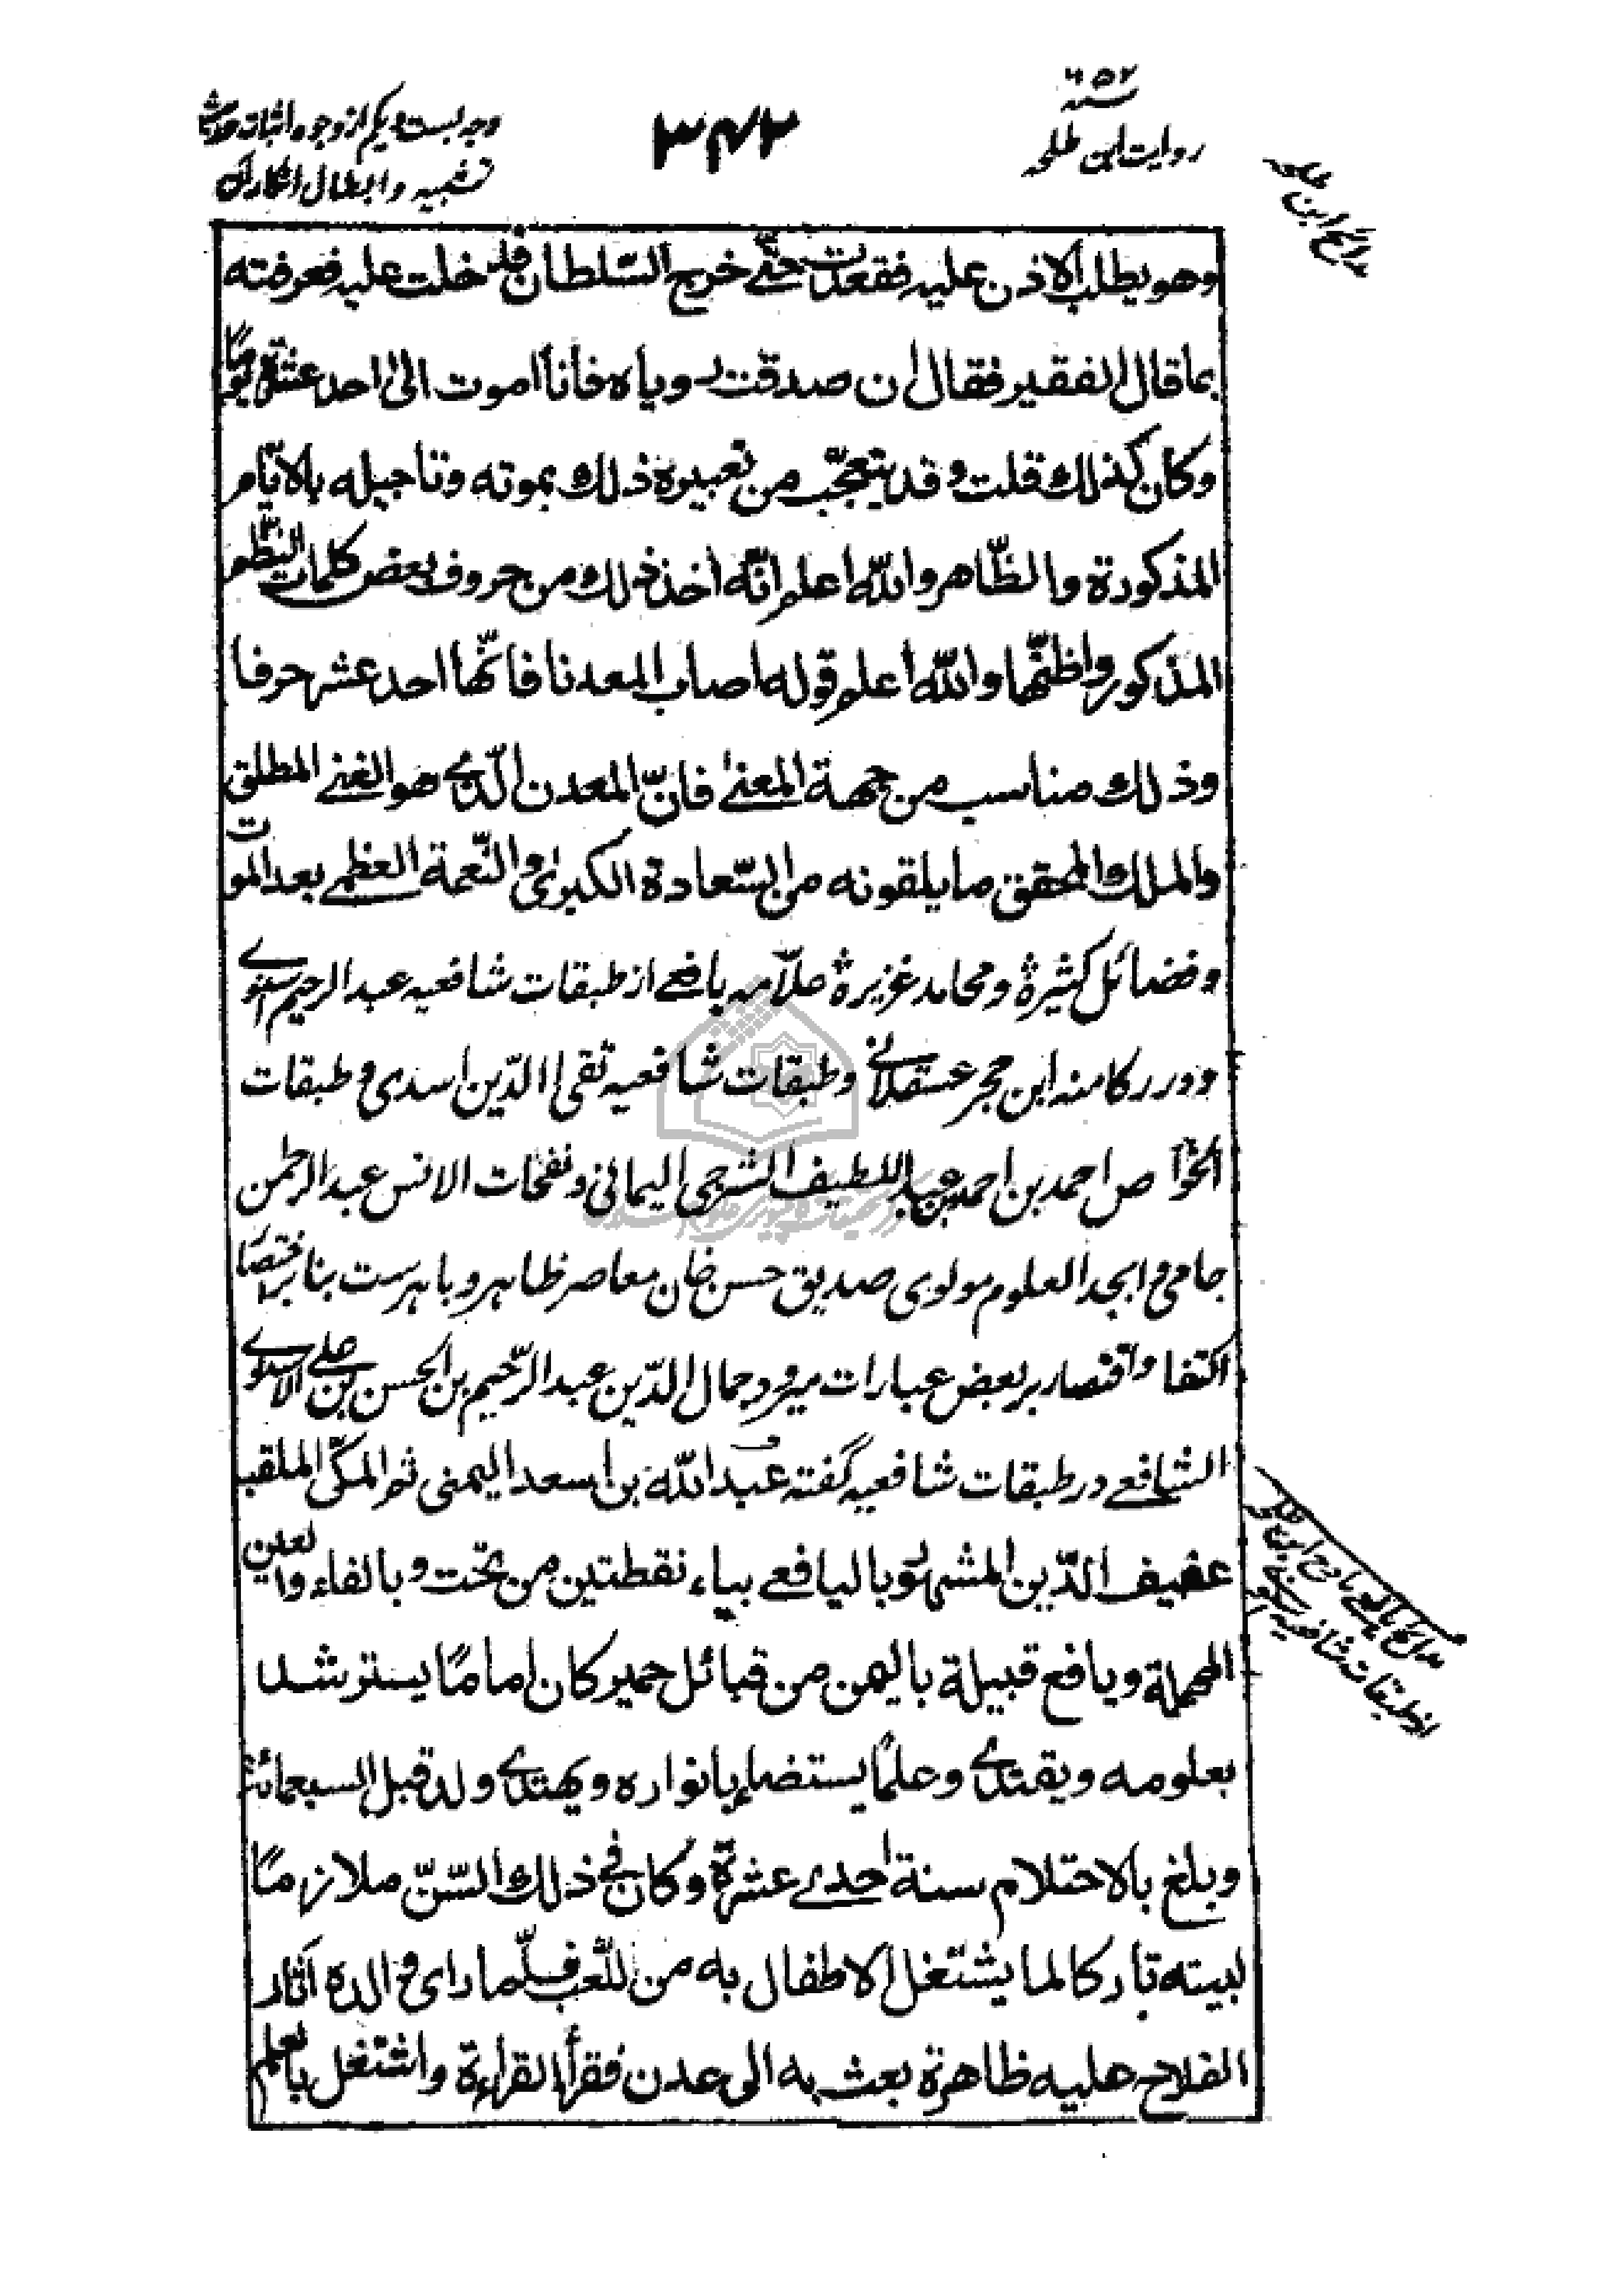 سنه ٦٥٢
روايت ابن طلحه
٣٤٢
وجه بست و يكم از وجوه اثبات حديث
تشبيه و ابطال انكار آن
مدايح ابن طلحه
وهو يطلب الاذن عليه فقعدت حتّى خرج السّلطان فدخلت عليه فعرفته
بما قال الفقير فقال ان صدقت روياه فانا اموت الى احد عشر يوماً
وكان كذلك قلت وقد يتعجّب من تعبيره ذلك بموته وتاجيله بالايّام
المذكورة والظّاهر واللّه اعلم انّه اخذ ذلك من حروف بعض كلمات النظم
المذكور واظنّها واللّه اعلم قوله اصاب المعدنا فانّها احد عشر حرفا
وذلك مناسب من جهة المعنىٰ فانّ المعدن الّذى هو الغنى المطلق
والملك المحقق ما يلقونه من السّعادة الكبرىٰ والنّعمة العظمى بعد الموت
وفضائل كثيرة ومحامد غزيرة علّامه يافعى از طبقات شافعيه عبد الرحيم اسنوى
ودرر كامنه ابن حجر عسقلانى وطبقات شافعيه تقى الدّين اسدى وطبقات
الخواص احمد بن احمد بن عبد اللطيف الشرجى اليمانى ونفحات الانس عبد الرحمن
جامى وابجد العلوم مولوى صديق حسن خان معاصر ظاهر و باهرست بنابر اختصار
اكتفا و اقتصار بر بعض عبارات ميرود جمال الدّين عبد الرّحيم بن الحسن بن على الاسنوى
الشافعى در طبقات شافعيه گفته عبد اللّه بن اسعد اليمنى ثم المكّى الملقب
عفيف الدّين المشهور باليافعى بياء نقطتين من تحت وبالفاء والعين
المهملة ويافع قبيلة باليمن من قبائل حمير كان اماماً يسترشد
بعلومه ويقتدى وعلماً يستضاء بانواره ويهتدى ولد قبل السبعمائة
وبلغ بالاحتلام سنة احدى عشرة وكان فى ذلك السّنّ ملازماً
لبيته تاركا لما يشتغل الاطفال به من اللّعب فلمّا راى والده اثار
الفلاح عليه ظاهرة بعث به الى عدن فقرأ القراءة واشتغل بالعلم
مدايح يافعى مادح ابن طلحه
از طبقات شافعيه اسنوى